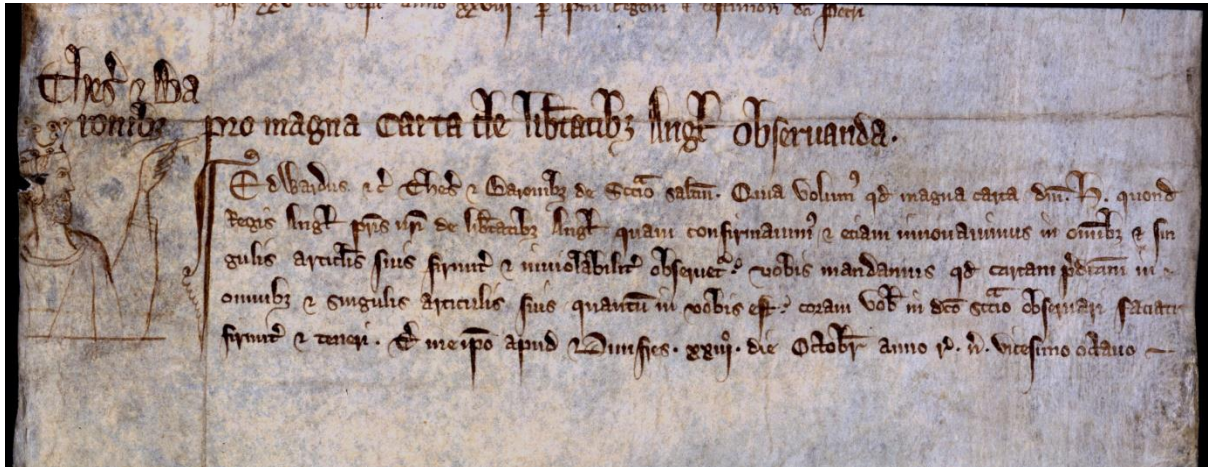 die anno xxviij. p ipm Regem & testimon dci Petri
Thes' & Ba
ronibz pro magna Carta de lib'tatibz Angl' obseruanda.
Edwardus. &c' Thes' & Baronibz de Sccio saltm. Quia volum' qd magna carta dni. H. quond
Regis Angl' pris nri de lib'tatibz Angl' quam confirmauim' & eciam innouauimus in omibz & sin
gulis articlis suis firmit' & inuiolabilit' obseruet'. vobis mandamus qd cartam p'dcam in
omnibz & singulis articulis suis quantu in vobis est. coram vob' in dco sccio obseruari faciatis
firmit' & teneri. T' me ipo apud Dunfres. xxiiij. die Octobr' anno r'. n'. vicesimo octauo